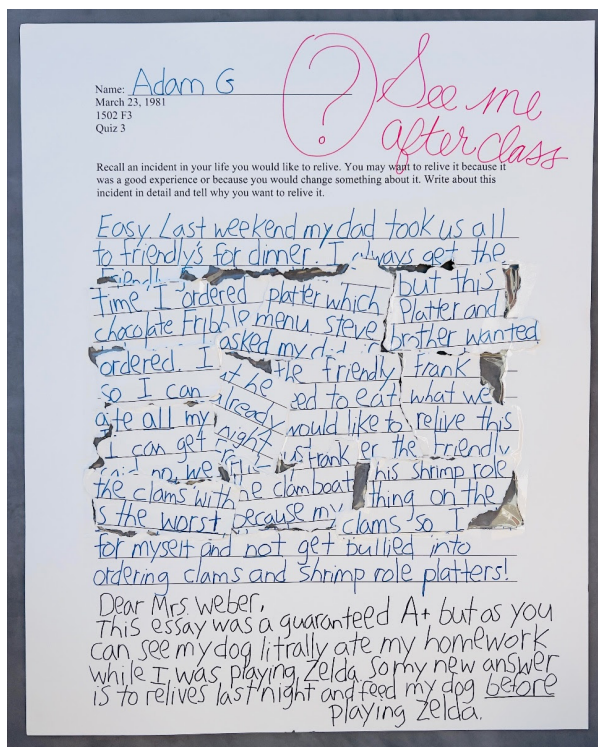 Name: Adam G
March 23, 1981
1502 F3
Quiz 3
? See me
after class
Recall an incident in your life you would like to relive. You may want to relive it because it
was a good experience or because you would change something about it. Write about this
incident in detail and tell why you want to relive it.
Easy. Last weekend my dad took us all
to friendly's for dinner. I always get the
time I ordered platter which but this
chocolate Fribble menu Steve Platter and
ordered. I asked my brother wanted
so I can at he the friendly frank
ate all my already sed to eat what we
I can get night would like to relive this
said no we frank er the friendly
the clams with he clamboat his shrimp role
is the worst because my clams so I thing on the
for myself and not get bullied into
ordering clams and shrimp role platters!
Dear Mrs. Weber,
This essay was a guaranteed A+ but as you
can see my dog litrally ate my homework
while I was playing Zelda. So my new answer
is to relives last night and feed my dog before
playing Zelda.